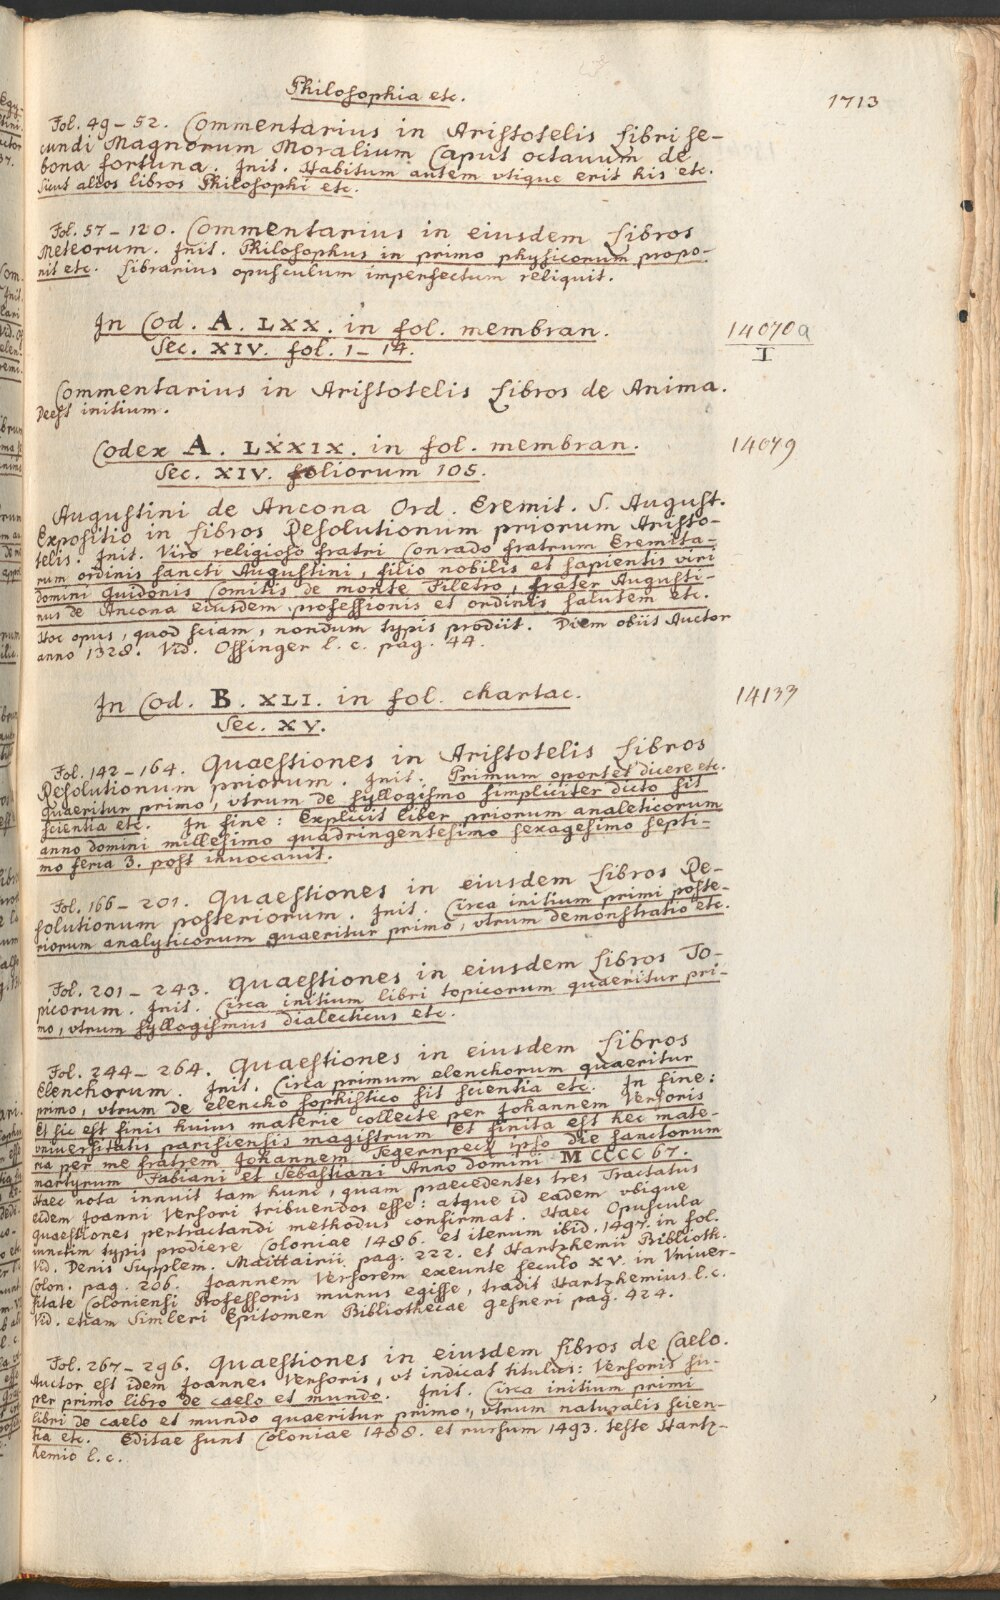 Philosophia etc.
1713
Fol. 49 – 52. Commentarius in Aristotelis Libri se-
cundi Magnorum Moralium Caput octauum de
bona fortuna. Init. Habitum autem vtique erit his etc.
Sicut alios libros Philosophi etc.
Fol. 57 – 120. Commentarius in eiusdem Libros
Meteorum. Init. Philosophus in primo physicorum propo-
nit etc. Librarius opusculum imperfectum reliquit.
In Cod. A. LXX. in fol. membran.
14070a
I
Sec. XIV. fol. 1 – 14.
Commentarius in Aristotelis Libros de Anima.
Deest initium.
Codex A. LXXIX. in fol. membran.
14079
Sec. XIV. foliorum 105.
Augustini de Ancona Ord. Eremit. S. August.
Expositio in Libros Resolutionum priorum Aristo-
telis. Init. Viro religioso fratri Conrado fratrum Eremita-
rum ordinis sancti Augustini, filio nobilis et sapientis viri
domini Guidonis Comitis de monte Filetro, frater Augusti-
nus de Ancona eiusdem professionis et ordinis salutem etc.
Hoc opus, quod sciam, nondum typis prodiit. Diem obiit Auctor
anno 1328. Vid. Ossinger l. c. pag. 44.
In Cod. B. XLI. in fol. chartac.
14133
Sec. XV.
Fol. 142 – 164. Quaestiones in Aristotelis Libros
Resolutionum priorum. Init. Primum oportet dicere etc.
Quaeritur primo, vtrum de syllogismo simpliciter dicto sit
scientia etc. In fine: Explicit liber priorum analeticorum
anno domini millesimo quadringentesimo sexagesimo septi-
mo feria 3. post inuocauit.
Fol. 166 – 201. Quaestiones in eiusdem Libros Re-
solutionum posteriorum. Init. Circa initium primi poste-
riorum analyticorum quaeritur primo, vtrum demonstratio etc.
Fol. 201 – 243. Quaestiones in eiusdem Libros To-
picorum. Init. Circa initium libri topicorum quaeritur pri-
mo, vtrum syllogismus dialecticus etc.
Fol. 244 – 264. Quaestiones in eiusdem Libros
Elenchorum. Init. Circa primum elenchorum quaeritur
primo, vtrum de elencho sophistico sit scientia etc. In fine:
Et sic est finis huius materie collecte per Johannem Versoris
vniuersitatis parisiensis magistrum Et finita est hec mate-
ria per me fratrem Johannem Tegernpeck ipso die sanctorum
martyrum Fabiani et Sebastiani Anno domini M CCCC 67.
Haec nota innuit tam hunc, quam praecedentes tres Tractatus
eidem Joanni Versori tribuendos esse: atque id eadem vbique
quaestiones pertractandi methodus confirmat. Haec Opuscula
iunctim typis prodiere Coloniae 1486. et iterum ibid. 1497. in fol.
Vid. Denis Supplem. Maittairii pag. 222. et Hartzhemii Biblioth.
Colon. pag. 206. Joannem Versorem exeunte seculo XV. in Vniuer-
sitate Coloniensi Professoris munus egisse, tradit Hartzhemius l. c.
Vid. etiam Simleri Epitomen Bibliothecae Gesneri pag. 424.
Fol. 267 – 296. Quaestiones in eiusdem Libros de Caelo.
Auctor est idem Joannes Versoris, vt indicat titulus: Versoris su-
per primo libro de caelo et mundo. Init. Circa initium primi
libri de caelo et mundo quaeritur primo, vtrum naturalis scien-
tia etc. Editae sunt Coloniae 1488. et rursum 1493. teste Hartz-
hemio l. c.